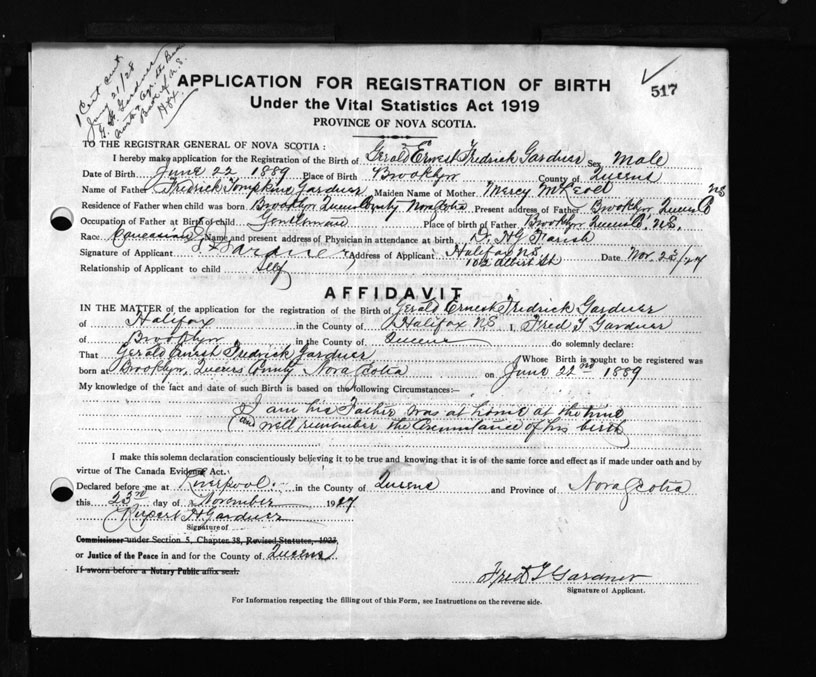 1 Cert sent
June 21/28
G. H. Gardner
517
APPLICATION FOR REGISTRATION OF BIRTH
Under the Vital Statistics Act 1919
PROVINCE OF NOVA SCOTIA.
TO THE REGISTRAR GENERAL OF NOVA SCOTIA :
I hereby make application for the Registration of the Birth of Gerald Ernest Fredrick Gardner Sex Male
Date of Birth June 22 1889 Place of Birth Brooklyn County of Queens
Name of Father Fredrick Tompkins Gardner Maiden Name of Mother Mercy McLeod
Residence of Father when child was born Brooklyn Queens County Nova Scotia Present address of Father Brooklyn Queens Co NS
Occupation of Father at Birth of child Place of birth of Father Brooklyn Queens Co. NS.
Race Name and present address of Physician in attendance at birth Dr. H G Farish
Signature of Applicant Gardner Address of Applicant Halifax NS. 102 Albert St Date Nov. 23/27
Relationship of Applicant to child Self
AFFIDAVIT
IN THE MATTER of the application for the registration of the Birth of Gerald Ernest Fredrick Gardner
of Halifax in the County of Halifax NS I, Fred T Gardner
of Brooklyn in the County of Queens do solemnly declare:
That Gerald Ernest Fredrick Gardner Whose Birth is sought to be registered was
born at Brooklyn, Queens County Nova Scotia on June 22nd 1889
My knowledge of the fact and date of such Birth is based on the following Circumstances:—
I am his Father was at home at the time
and well remember the Circumstance of his birth
I make this solemn declaration conscientiously believing it to be true and knowing that it is of the same force and effect as if made under oath and by
virtue of The Canada Evidence Act.
Declared before me at Liverpool in the County of Queens and Province of Nova Scotia
this 23rd day of November 1927
Rupert H Gardner
Signature of
Commissioner under Section 5, Chapter 38, Revised Statutes, 1923
or Justice of the Peace in and for the County of Queens
If sworn before a Notary Public affix seal.
Fred T Gardner
Signature of Applicant.
For Information respecting the filling out of this Form, see Instructions on the reverse side.